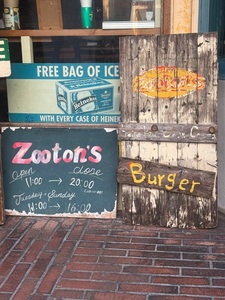 FREE BAG OF ICE
Heineken
WITH EVERY CASE OF HEINE
Zooton's
Open close
11:00 → 20:00
Tuesday・Sunday
11:00 → 16:00
Burger